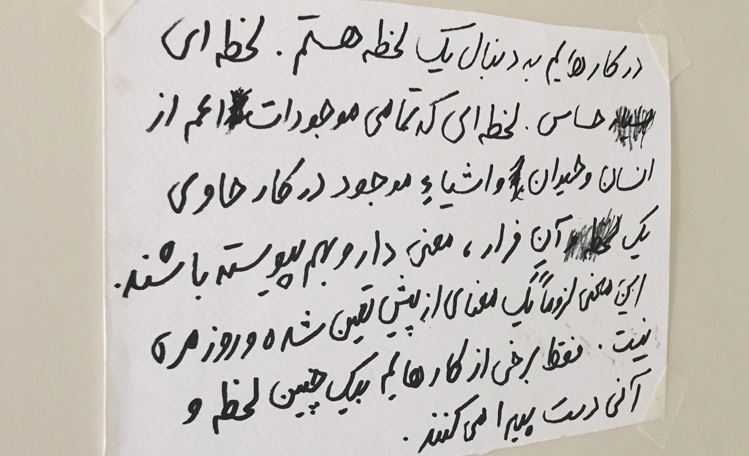 در کارهایم به دنبال یک لحظه هستم. لحظه ای
حساس. لحظه ای که تمامی موجودات اعم از
انسان و حیوان و اشیاءِ موجود در کار حاوی
یک آنِ فرار، معنی دار و بهم پیوسته باشند.
این معنی لزوماً یک معنای از پیش تعین شده و روزمره
نیست. فقط برخی از کارهایم بیک چنین لحظه و
آنی دست پیدا می کنند.